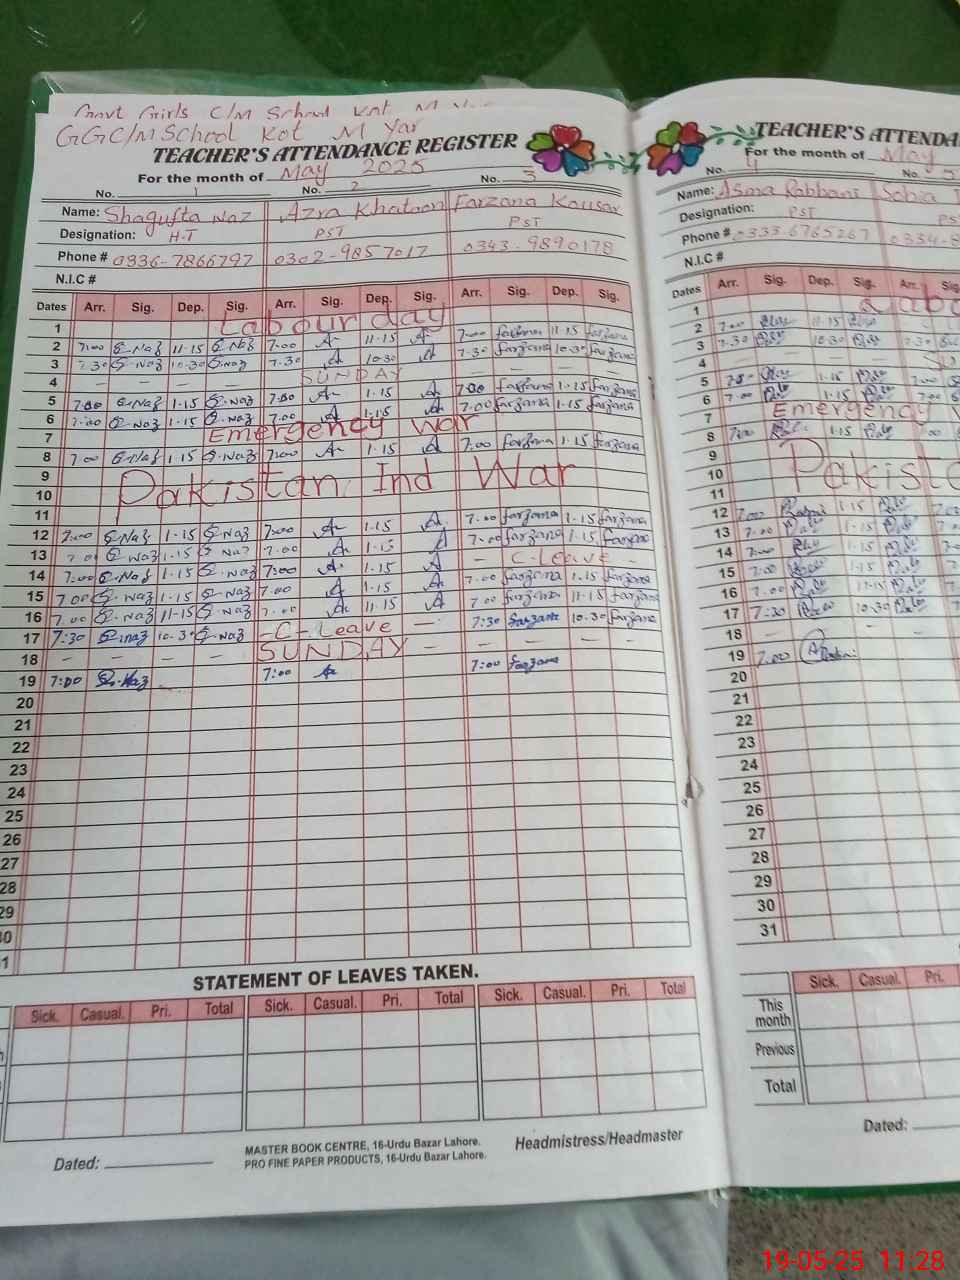 Govt Girls C/M School Kot M Yar
GGC/M School Kot M Yar
TEACHER'S ATTENDANCE REGISTER
For the month of May 2025
No. 1 No. 2 No. 3
Name: Shagufta Naz Azra Khatoon Farzana Kousar
Designation: H.T PST PST
Phone # 0336-7866797 0302-9857017 0343-9890178
N.I.C #
Dates Arr. Sig. Dep. Sig. Arr. Sig. Dep. Sig. Arr. Sig. Dep. Sig.
1 Labour day
2 7:00 S.Naz 11-15 S.Naz 7.00 A 11-15 A 7.00 farzana 11-15 farzana
3 7.30 S.Naz 10-30 S.Naz 7.30 A 10-30 A 7-30 farzana 10-30 farzana
4 - - - - SUNDAY
5 7:00 S.Naz 1.15 S.Naz 7:00 A 1.15 A 7:00 farzana 1-15 farzana
6 7:00 S.Naz 1.15 S.Naz 7.00 A 1.15 A 7.00 farzana 1.15 farzana
7 Emergency war
8 7.00 S.Naz 1.15 S.Naz 7:00 A 1.15 A 7:00 farzana 1.15 farzana
9
10 Pakistan Ind War
11
12 7:00 S.Naz 1-15 S.Naz 7:00 A 1.15 A 7.00 farzana 1.15 farzana
13 7.00 S.Naz 1.15 S.Naz 7.00 A 1.15 A 7.00 farzana 1.15 farzana
14 7:00 S.Naz 1.15 S.Naz 7:00 A 1.15 A - - Leave -
15 7.00 S.Naz 1-15 S.Naz 7.00 A 1.15 A 7.00 farzana 1.15 farzana
16 7.00 S.Naz 11-15 S.Naz 7.00 A 11.15 A 7.00 farzana 11.15 farzana
17 7:30 S.naz 10.30 S.Naz - C - Leave - 7:30 farzana 10.30 farzana
18 - - - - SUNDAY - - - -
19 7:00 S.Naz 7:00 A 7:00 farzana
20
21
22
23
24
25
26
27
28
29
30
31
STATEMENT OF LEAVES TAKEN.
Sick. Casual. Pri. Total Sick. Casual. Pri. Total Sick. Casual. Pri. Total
Dated:
MASTER BOOK CENTRE, 16-Urdu Bazar Lahore.
PRO FINE PAPER PRODUCTS, 16-Urdu Bazar Lahore.
Headmistress/Headmaster
TEACHER'S ATTENDA
For the month of May
No. 4 No. 5
Name: Asma Rabbani Sobia
Designation: PST PS
Phone # 0333-6765267 0334-8
N.I.C #
Dates Arr. Sig. Dep. Sig. Arr. Sig
1 Labo
2 7.00 11-15
3 7.30 10.30 7.30
4 SU
5 1.15 7.00
6 7.00 1.15 7.00
7 Emergency W
8 7:00 1.15
9
10 Pakista
11
12 7.00 1.15
13 7.00 1.15
14 7:00 1.15
15 7.00 1.15
16 7.00 11-15
17 7:30 10.30
18 - - - -
19 7.00
20
21
22
23
24
25
26
27
28
29
30
31
Sick. Casual. Pri.
This month
Previous
Total
Dated:
19-05-25 11:28